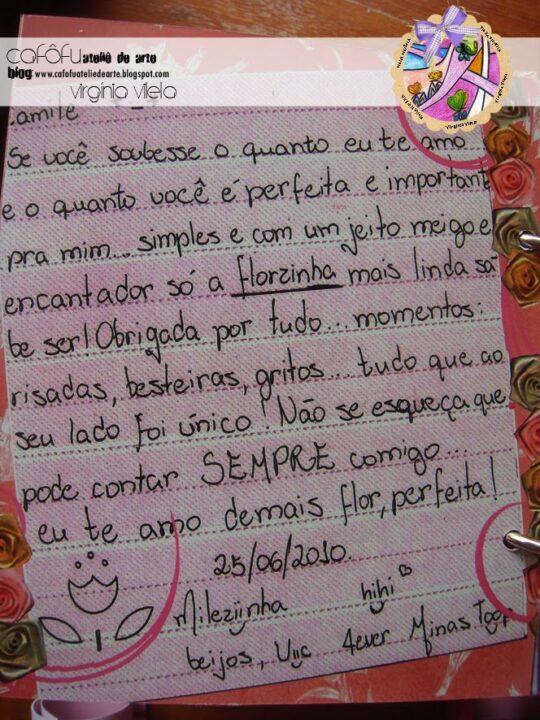 cafôfu ateliê de arte
blog: www.cafofuateliedearte.blogspot.com
virgínia vilela
Se você soubesse o quanto eu te amo
e o quanto você é perfeita e important
pra mim... simples e com um jeito meigo e
encantador só a florzinha mais linda sa
be ser! Obrigada por tudo... momentos:
risadas, besteiras, gritos... tudo que ao
seu lado foi único! Não se esqueça que
pode contar SEMPRE comigo...
eu te amo demais flor, perfeita!
25/06/2010.
Milezijnha hihi
beijos, 4ever Minas